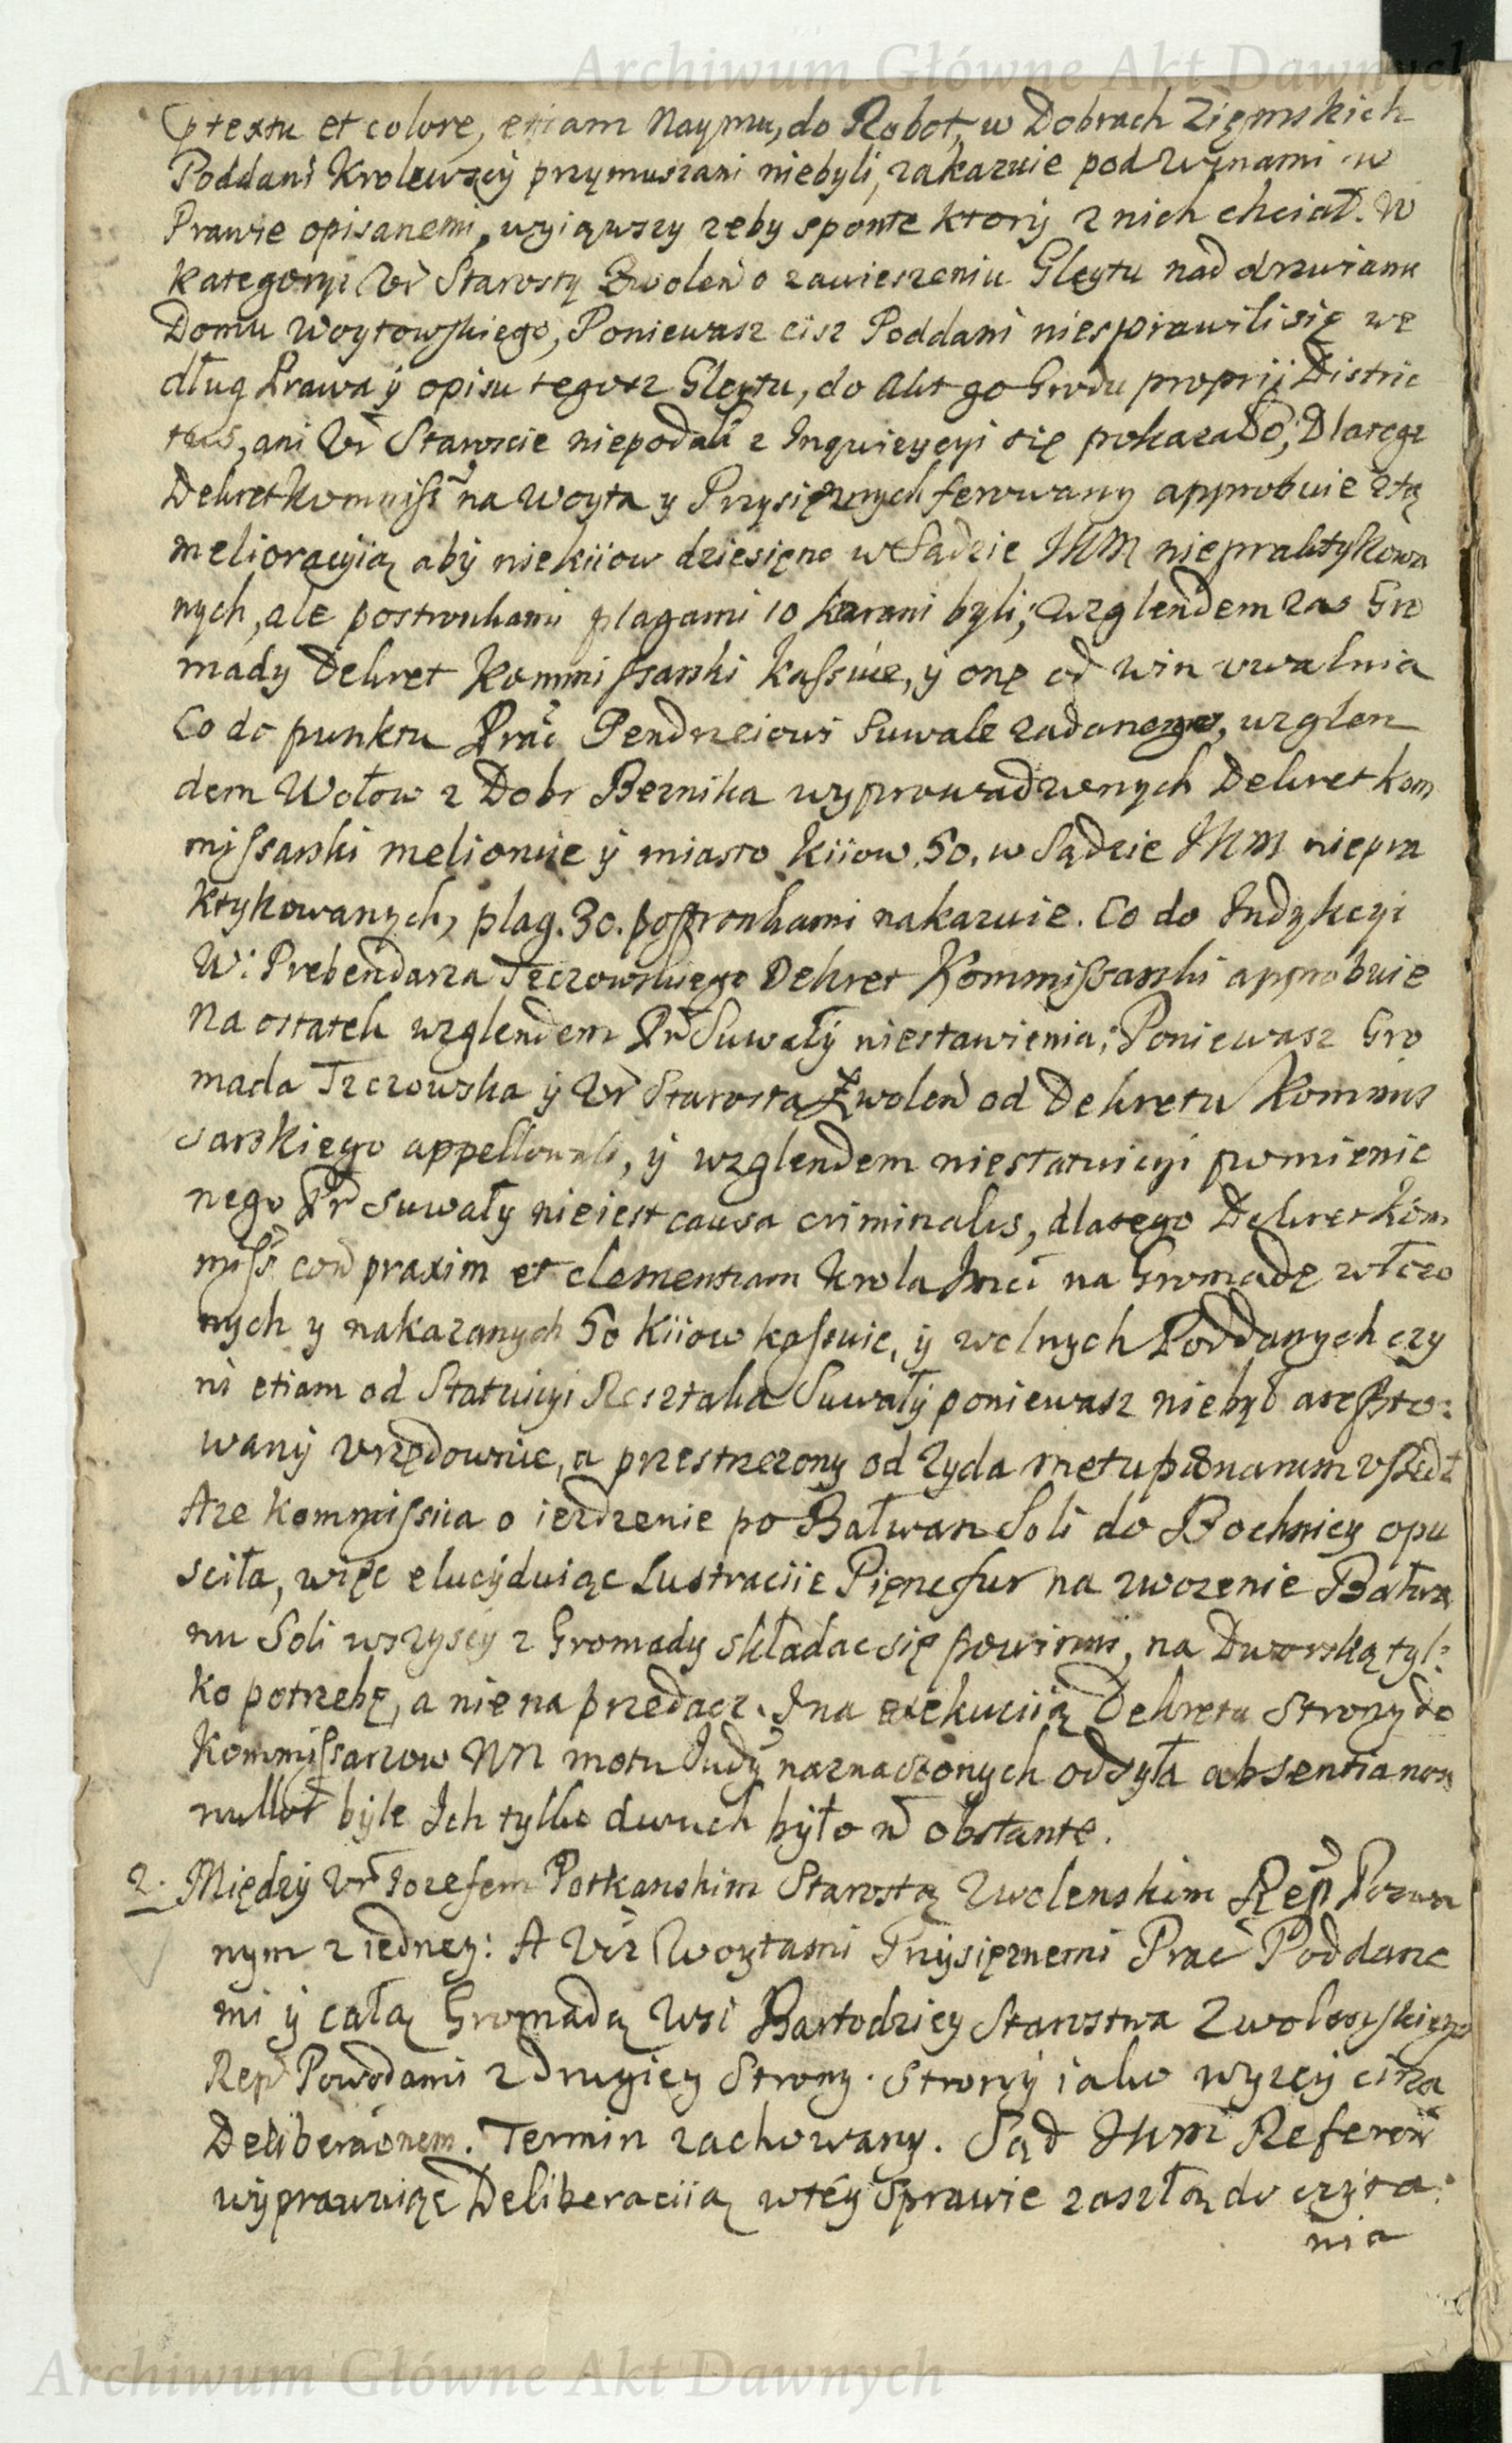 Archiwum Główne Akt Dawnych
Ptextu et colore, etiam Naymu, do Robot, w Dobrach Ziemskich
Poddani Krolewscy przymuszani niebyli, zakazuie pod winami w
Prawie opisanemi, wyiąwszy zeby sponte ktory z nich chciał. W
kategoryi Ur Starosty Zwoleń o zawieszeniu Gleytu nad drzwiami
Domu Woytowskiego, Poniewasz cisz Poddani niesprawili się we
dług Prawa y opisu tegosz Gleytu, do Akt go Grodu proprij Distric
tus, ani Ur Staroscie niepodali z Inquizycyi się pokazało; Dlatego
Dekret Kommiss na Woyta y Przysięznych ferowany approbuie z tą
melioracyią aby niekiiow dziesięno w Sądzie JKM niepraktykowa
nych, ale postronkami plagami 10 karani byli; względem zas Gro
mady Dekret Kommissarski kassuie, y onę od win uwalnia
Co do punktu Prac Jendrzeiowi Suwale zadanego, wzglen
dem Wołow z Dobr Bernika wyprowadzonych Dekret kom
missarski melioruie y miasto kiiow 50. w Sądzie JKM niepra
ktykowanych, plag. 30. postronkami nakazuie. Co do Indykcyi
W: Prebendarza Tczowskiego Dekret Kommissarski approbuie
Na ostatek wzglendem Pr Suwały niestawienia; Poniewasz Gro
mada Tczowska y Ur Starosta Zwoleń od Dekretu Kommis
sarskiego appellowali, y wzglendem niestatuicyi pomienio
nego Pr Suwały nieiest causa criminalis, dlatego Dekret Kom
miss con praxim et clementiam Krola Jmci na Gromadę włozo
nych y nakazanych 50 kiiow kassuie, y wolnych Poddanych czy
ni etiam od Statuicyi Resztaka Suwały poniewasz niebył aresto:
wany urzędownie, a przestrzezony od Zyda metu pænarum uszedł
Aze Kommissiia o iezdzenie po Bałwan Soli do Bochnicy opu
sciła, więc elucyduiąc Lustraciie Pięnc fur na zwozenie Bałwa
nu Soli wszyscy z Gromady składac się powinni, na Dworską tyl:
ko potrzebę, a nie na przedacz. I na exekuciią Dekretu Strony do
Kommissarzow NN motu Judy naznaczonych odsyła absentia non
nullor byle Ich tylko dwuch było n obstante.
2. Między Ur Jozefem Potkanskim Starostą Zwolenskim Rep Pozwa
nym z iedney: A Urz Woytami Przysięznemi Prac Poddane
mi y całą Gromadą Wsi Bartodziey Starostwa Zwolenskiego
Rep Powodami z Drugiey Strony. Strony iako wyzey citra
Deliberaonem. Termin zachowany. Sąd JKM Referen
wyprawuiąc Deliberaciią w tey Sprawie zaszłą do czyta:
nia
Archiwum Główne Akt Dawnych